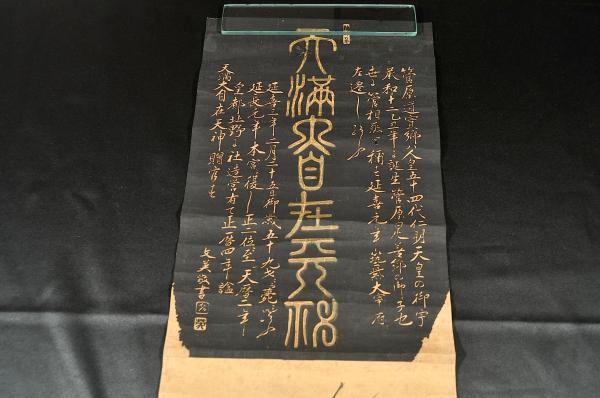 天満大自在天神
菅原道真卿人皇五十四代仁明天皇の御宇
承和十二乙丑年に誕生菅原是善卿の御子也
世に菅相丞と称す延喜元年筑紫大宰府
左遷し給ふ
延喜三年二月二十五日御歳五十九才に薨給ふ
延長元年本官復し正二位至天暦二年
皇都北野に社造営有て正暦四年謚
天満大自在天神贈官す
書